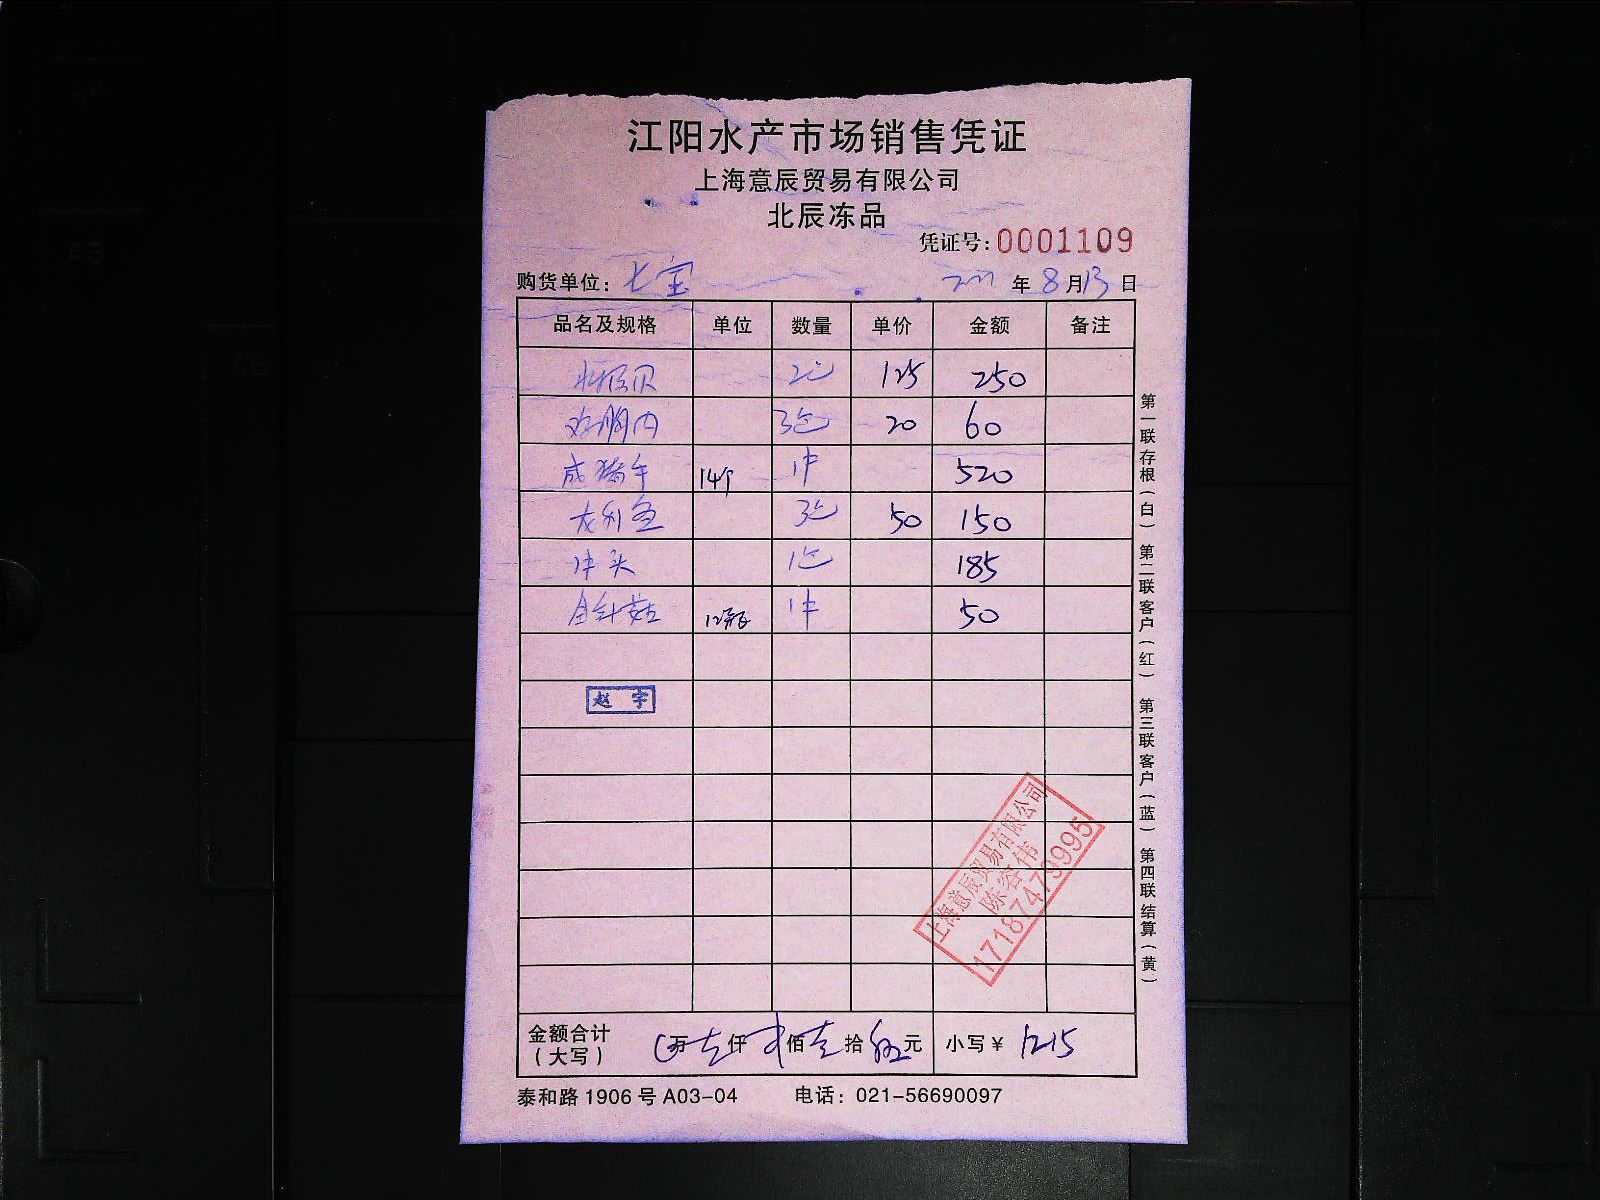 江阳水产市场销售凭证
上海意辰贸易有限公司
北辰冻品
凭证号:0001109
购货单位: 七宝 年 8 月 13 日
品名及规格 单位 数量 单价 金额 备注
2包 125 250
鸡胸肉 3包 20 60
14个 1件 520
龙利鱼 3包 50 150
1包 185
金针菇 12瓶 1件 50
赵宇
上海意辰贸易有限公司
陈容伟
17187479995
金额合计 万 壹 仟 贰 佰 壹 拾 伍 元 小写¥ 1215
(大写)
泰和路1906号A03-04 电话: 021-56690097
第一联存根(白) 第二联客户(红) 第三联客户(蓝) 第四联结算(黄)